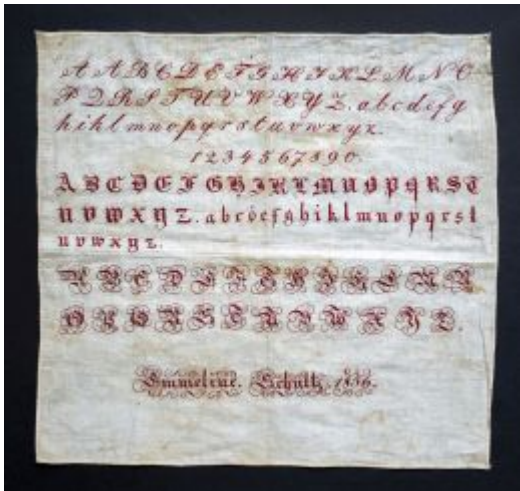 A A B C D E F G H I K L M N O
P Q R S T U V W X Y Z. a b c d e f g
h i k l m n o p q r s t u v w x y z.
1 2 3 4 5 6 7 8 9 0.
A B C D E F G H I K L M N O P Q R S T
U V W X Y Z. a b c d e f g h i k l m n o p q r s t
u v w x y z.
Emmeline. Schultz.